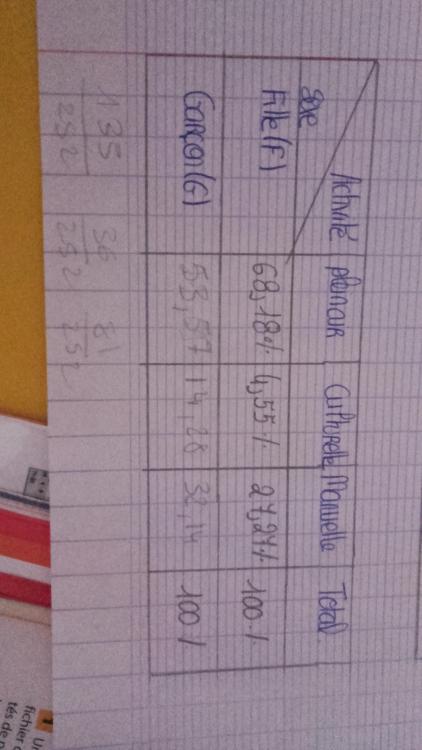 Activité plein air Culturelle Manuelle Total
Sexe
Fille (F) 68,18% 4,55% 27,27% 100%
Garçon (G) 53,57 14,28 32,14 100%
135 36 81
252 252 252
1 Un
fichier
tés de